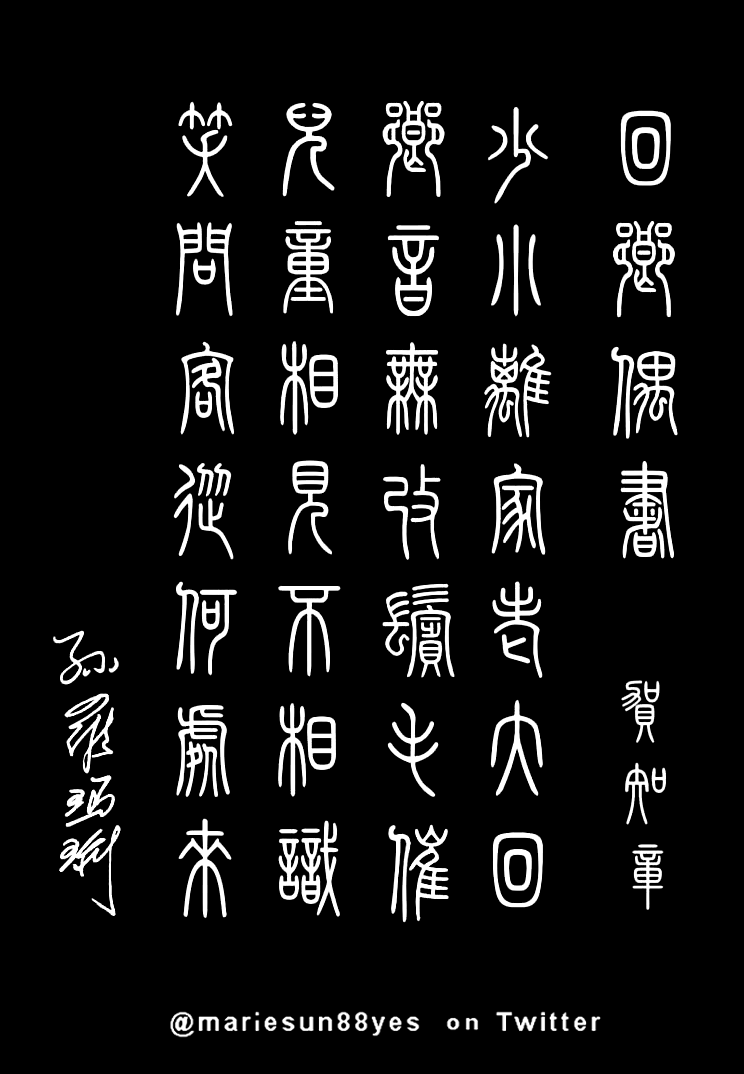 回鄉偶書 賀知章
少小離家老大回
鄉音無改鬢毛催
兒童相見不相識
笑問客從何處來
孫羅瑪琍
@mariesun88yes on Twitter